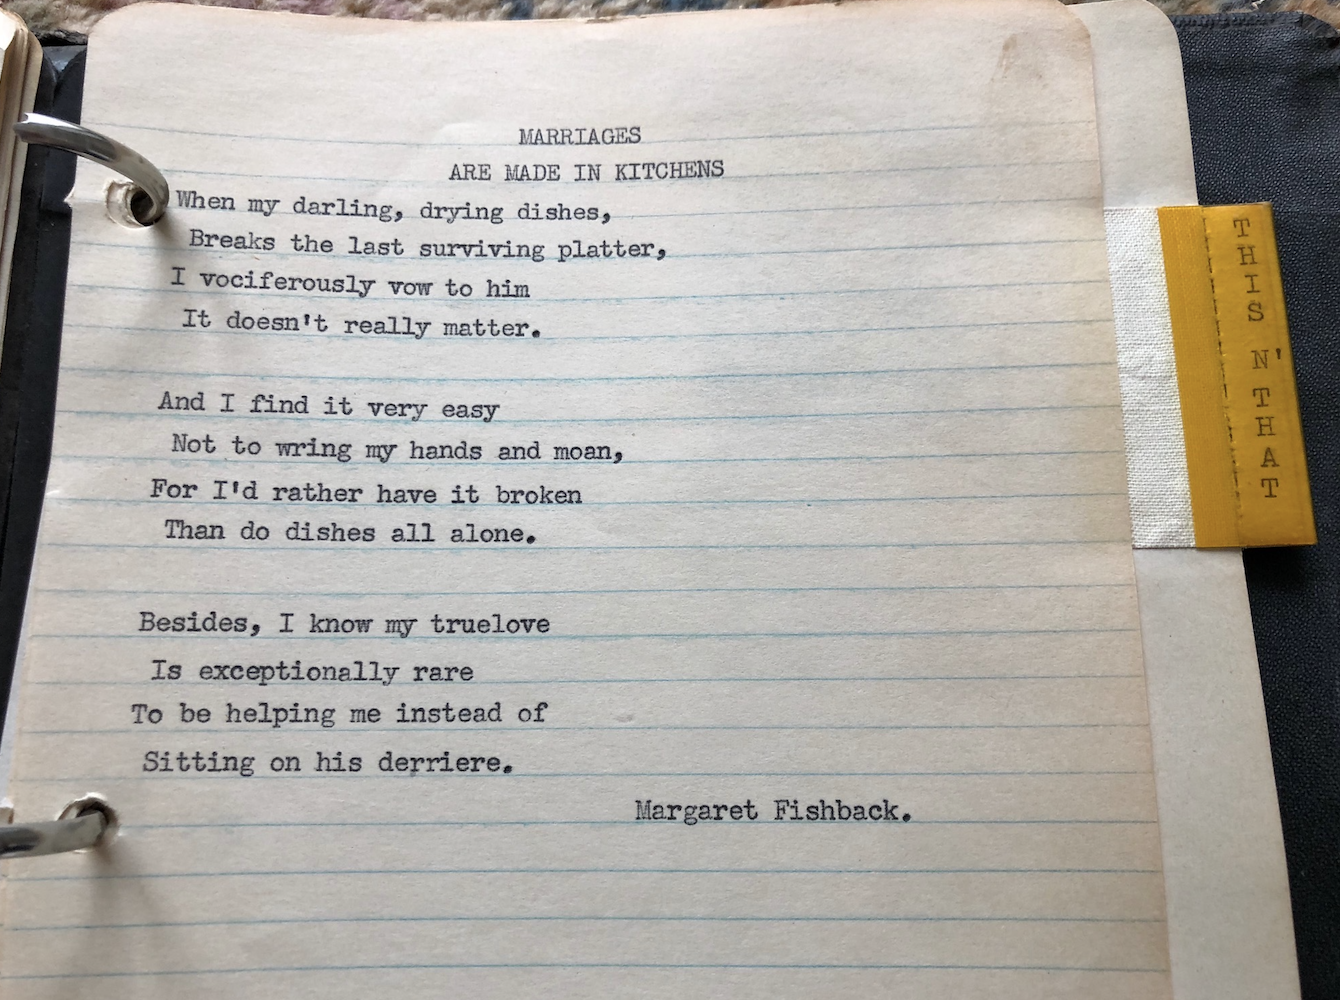 MARRIAGES
ARE MADE IN KITCHENS
When my darling, drying dishes,
Breaks the last surviving platter,
I vociferously vow to him
It doesn't really matter.
And I find it very easy
Not to wring my hands and moan,
For I'd rather have it broken
Than do dishes all alone.
Besides, I know my truelove
Is exceptionally rare
To be helping me instead of
Sitting on his derriere.
Margaret Fishback.
THIS N' THAT